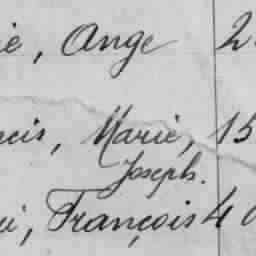 ie, Ange 2
cis, Marie, 15
Joseph.
i, François 40